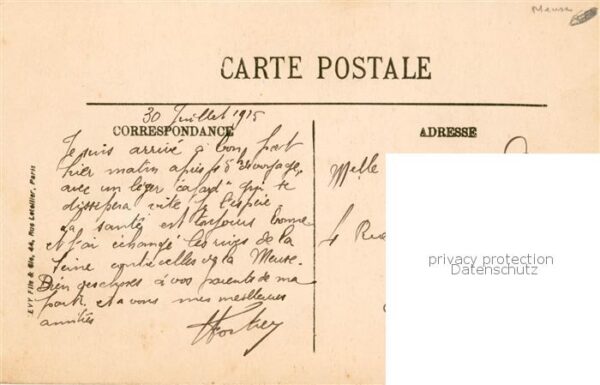 Meuse
CARTE POSTALE
30 Juillet 1915
CORRESPONDANCE
ADRESSE
Je suis arrivé à bon port
hier matin après voyage
avec un léger "cafard" qui se
dissipera vite je l'espère.
La santé est toujours bonne
et j'ai échangé les rives de la
Seine contre celles de la Meuse.
Bien des choses à vos parents de ma
part et à vous mes meilleures
amitiés
Melle
4 Rue
privacy protection
Datenschutz
EVY Fils & Cie, 44, Rue Letellier, Paris